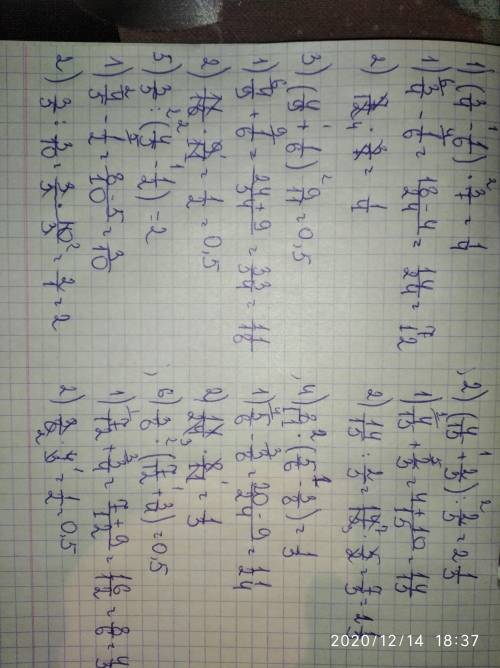 1) (3/4 - 1/6) · 3/7 = 1/4
1) 3/4 - 1/6 = 18-4/24 = 14/24 = 7/12
2) 7/12 · 3/7 = 1/4
3) (4/9 + 1/6) 9/11 = 0,5
1) 4/9 + 1/6 = 24+9/54 = 33/54 = 11/18
2) 11/18 · 9/11 = 1/2 = 0,5
5) 3/5 : (4/5 - 1/2) = 2
1) 4/5 - 1/2 = 8-5/10 = 3/10
2) 3/5 : 3/10 = 3/5 · 10/3 = 2/1 = 2
2) (4/15 + 2/3) : 2/5 = 2 1/3
1) 4/15 + 2/3 = 4+10/15 = 14/15
2) 14/15 : 2/5 = 14/15 · 5/2 = 7/3
4) 8/11 · (5/6 - 3/8) = 1/3
1) 5/6 - 3/8 = 20-9/24 = 11/24
2) 11/24 · 8/11 = 1/3
6) : (7/12 + 3/4) = 0,5
1) 7/12 + 3/4 = 7+9/12 = 16/12 = 8/6 = 4/3
2) = 1/2 = 0,5
2020/12/14 18:37